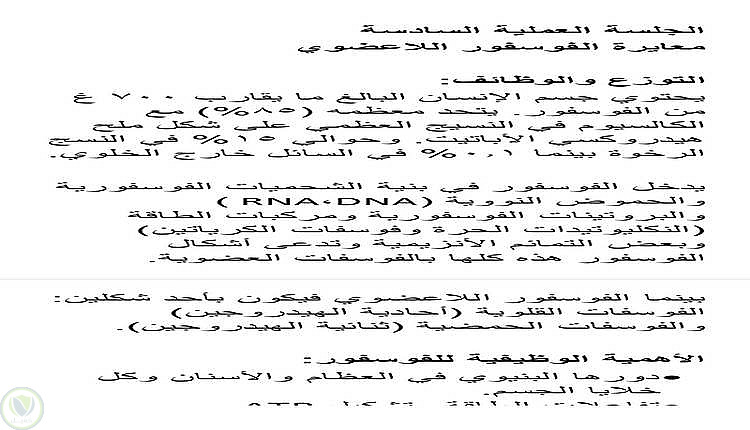 الجلسة العملية السادسة
معايرة الفوسفور اللاعضوي
التوزع والوظائف:
يحتوي جسم الإنسان البالغ ما يقارب ٧٠٠ غ
من الفوسفور. يتحد معظمه (٨٥%) مع
الكالسيوم في النسيج العظمي على شكل ملح
هيدروكسي الأباتيت. وحوالي ١٥% في النسج
الرخوة بينما ٠,١% في السائل خارج الخلوي.
يدخل الفوسفور في بنية الشحميات الفوسفورية
والحموض النووية (RNA،DNA )
والبروتينات الفوسفورية ومركبات الطاقة
(النكليوتيدات الحرة وفوسفات الكرياتين)
وبعض التمائم الأنزيمية وتدعى أشكال
الفوسفور هذه كلها بالفوسفات العضوية.
بينما الفوسفور اللاعضوي فيكون بأحد شكلين:
الفوسفات القلوية (أحادية الهيدروجين)
والفوسفات الحمضية (ثنائية الهيدروجين).
الأهمية الوظيفية للفوسفور:
●دورها البنيوي في العظام والأسنان وكل
خلايا الجسم.